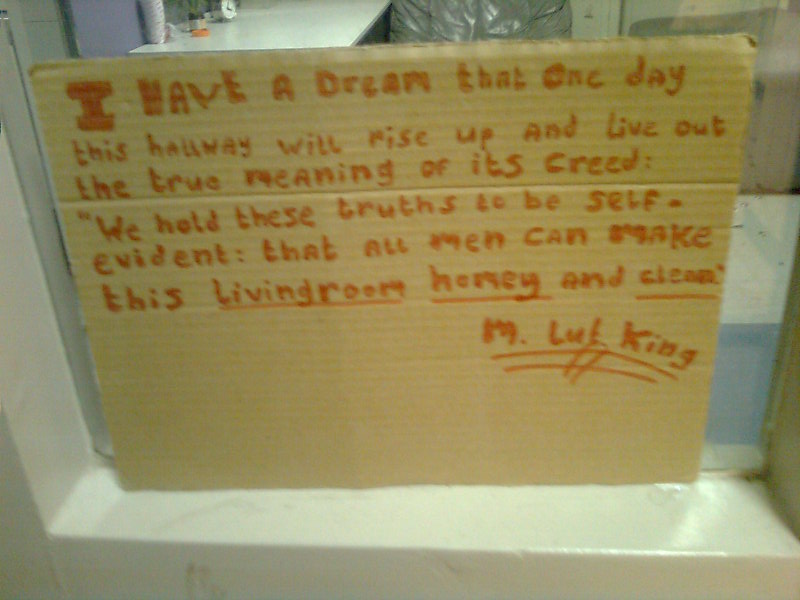 I HAVE A Dream that One day
this hallway will rise up and live out
the true meaning of its creed:
"We hold these truths to be self-
evident: that all men can make
this livingroom homey and clean."
M. Lut. King